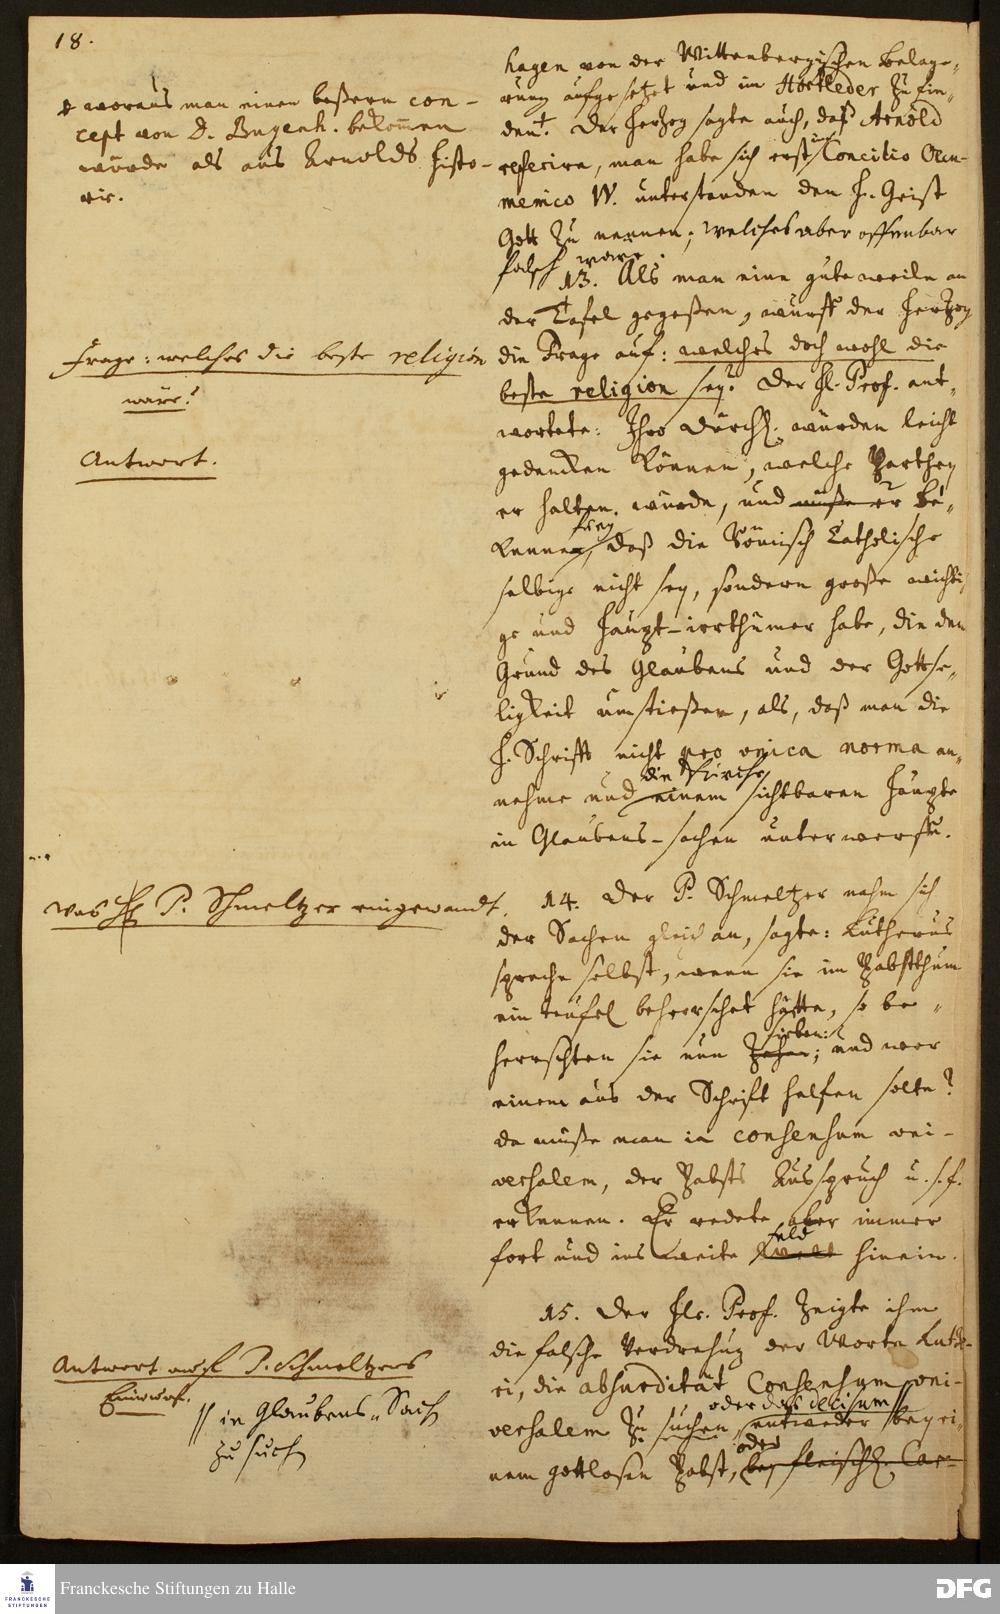 18.
woraus man einen beßern con-
cept von D. Bugenh. bekommen
würde als aus Arnolds Histo-
rie.
Frage: welches die beste religion
wäre?
Antwort.
was H. P. Schmeltzer eingewandt.
Antwort auf P. Schmeltzers
Einwurf.
// in Glaubens-Sach
zu such
hagen von der Wittenbergischen Belage-
rung aufgesetzet und im Hortleder zu fin-
den. Der Hertzog sagte auch, daß Arnold
referire, man habe sich erst im Concilio Oecu-
menico VI. unterstanden den H. Geist
Gott zu nennen; welches aber offenbar
falsch wäre.
13. Als man eine gute weile an
der Tafel gegeßen, wurff der Hertzog
die Frage auf: welches doch wohl die
beste religion sey? Der H. Prof. ant-
wortete: Ihro Durchl. würden leicht
gedencken können, welche Parthey
er halten würde, und müße er be-
kennen frey, daß die Römisch Catholische
selbige nicht sey, sondern große wichti-
ge und Haupt-irrthümer habe, die den
Grund des Glaubens und der Gottse-
ligkeit umstießen, als, daß man die
H. Schrifft nicht pro unica norma an-
nehme und einem die Kirche sichtbaren Haupte
in Glaubens-sachen unterwerffe.
14. Der P. Schmeltzer nahm sich
der Sachen gleich an, sagte: Lutherus
spreche selbst, wenn sie im Pabstthum
ein teufel beherrschet hätte, so be-
herrschten sie nun Zehen sieben; und wer
einem aus der Schrift helfen solte?
da müße man in consensum uni-
versalem, der Pabsts Ausspruch u.s.f.
erkennen. Er redete aber immer
fort und ins weite Feld hinein.
15. Der Hr. Prof. zeigte ihm
die falsche Verdrehung der Worte Luthe-
ri, die absurdität Consensum uni-
versalem zu suchen, oder das decisum // entweder bey ei-
nem gottlosen Pabst, oder bey fleischl. Car-
Franckesche Stiftungen zu Halle
FRANCKESCHE
STIFTUNGEN
DFG